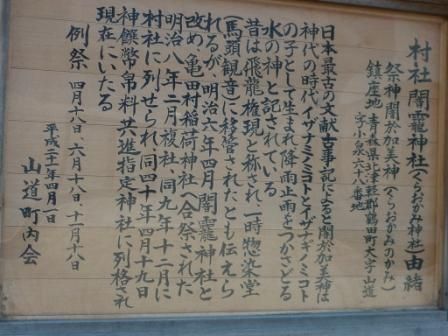 村社 闇靇神社(くらおかみ神社)由緒
祭神 闇於加美神(くらおかみのかみ)
鎮座地 青森県北津軽郡鶴田町大字山道
字小泉六十八番地
日本最古の文献古事記によると闇於加美神は
神代の時代イザナミノミコトとイザナギノミコト
の子として生まれ、降雨止雨をつかさどる
水の神と記されている
昔は飛龍権現と称され、一時惣染堂
馬頭観音に移管されたとも伝えら
れるが、明治六年四月闇靇神社と
改め、亀田村稲荷神社へ合祭された
明治八年二月複社、同九年十二月に
村社に列せられ、同四十年四月十九日
神饌幣帛料共進指定神社に列格され
現在にいたる
例祭 四月十八日 六月十八日、十一月十八日
平成二十一年四月一日
山道町内会